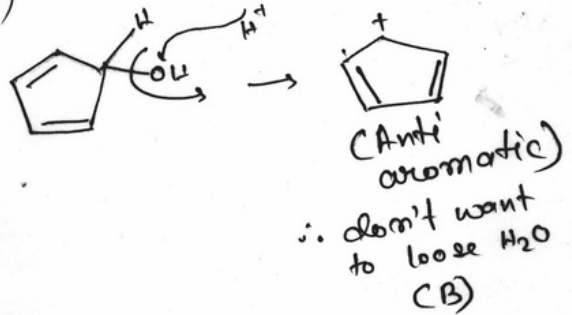 )
H
H+
OH
→
+
(Anti
aromatic)
∴ don't want
to loose H₂O
(B)